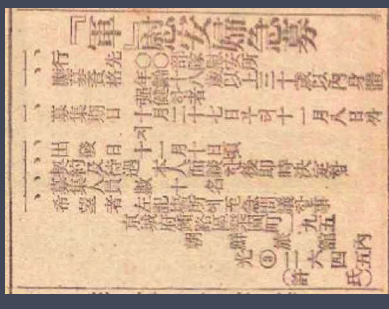 『軍』慰安婦急募
一、行先 ○○部隊慰安所
一、應募資格 年齡十八歲以上三十歲以內身體强健한者
一、募集期日 十月二十七日부터十一月八日外지
一、出發日 十一月十日頃
一、契約及待遇 本人面談後即時決定함
一、募集人員 數十名
一、希望者 左記場所에至急問議할事
京城府鍾路區樂園町一九五
朝鮮旅館內
光③二六四五
(許氏)